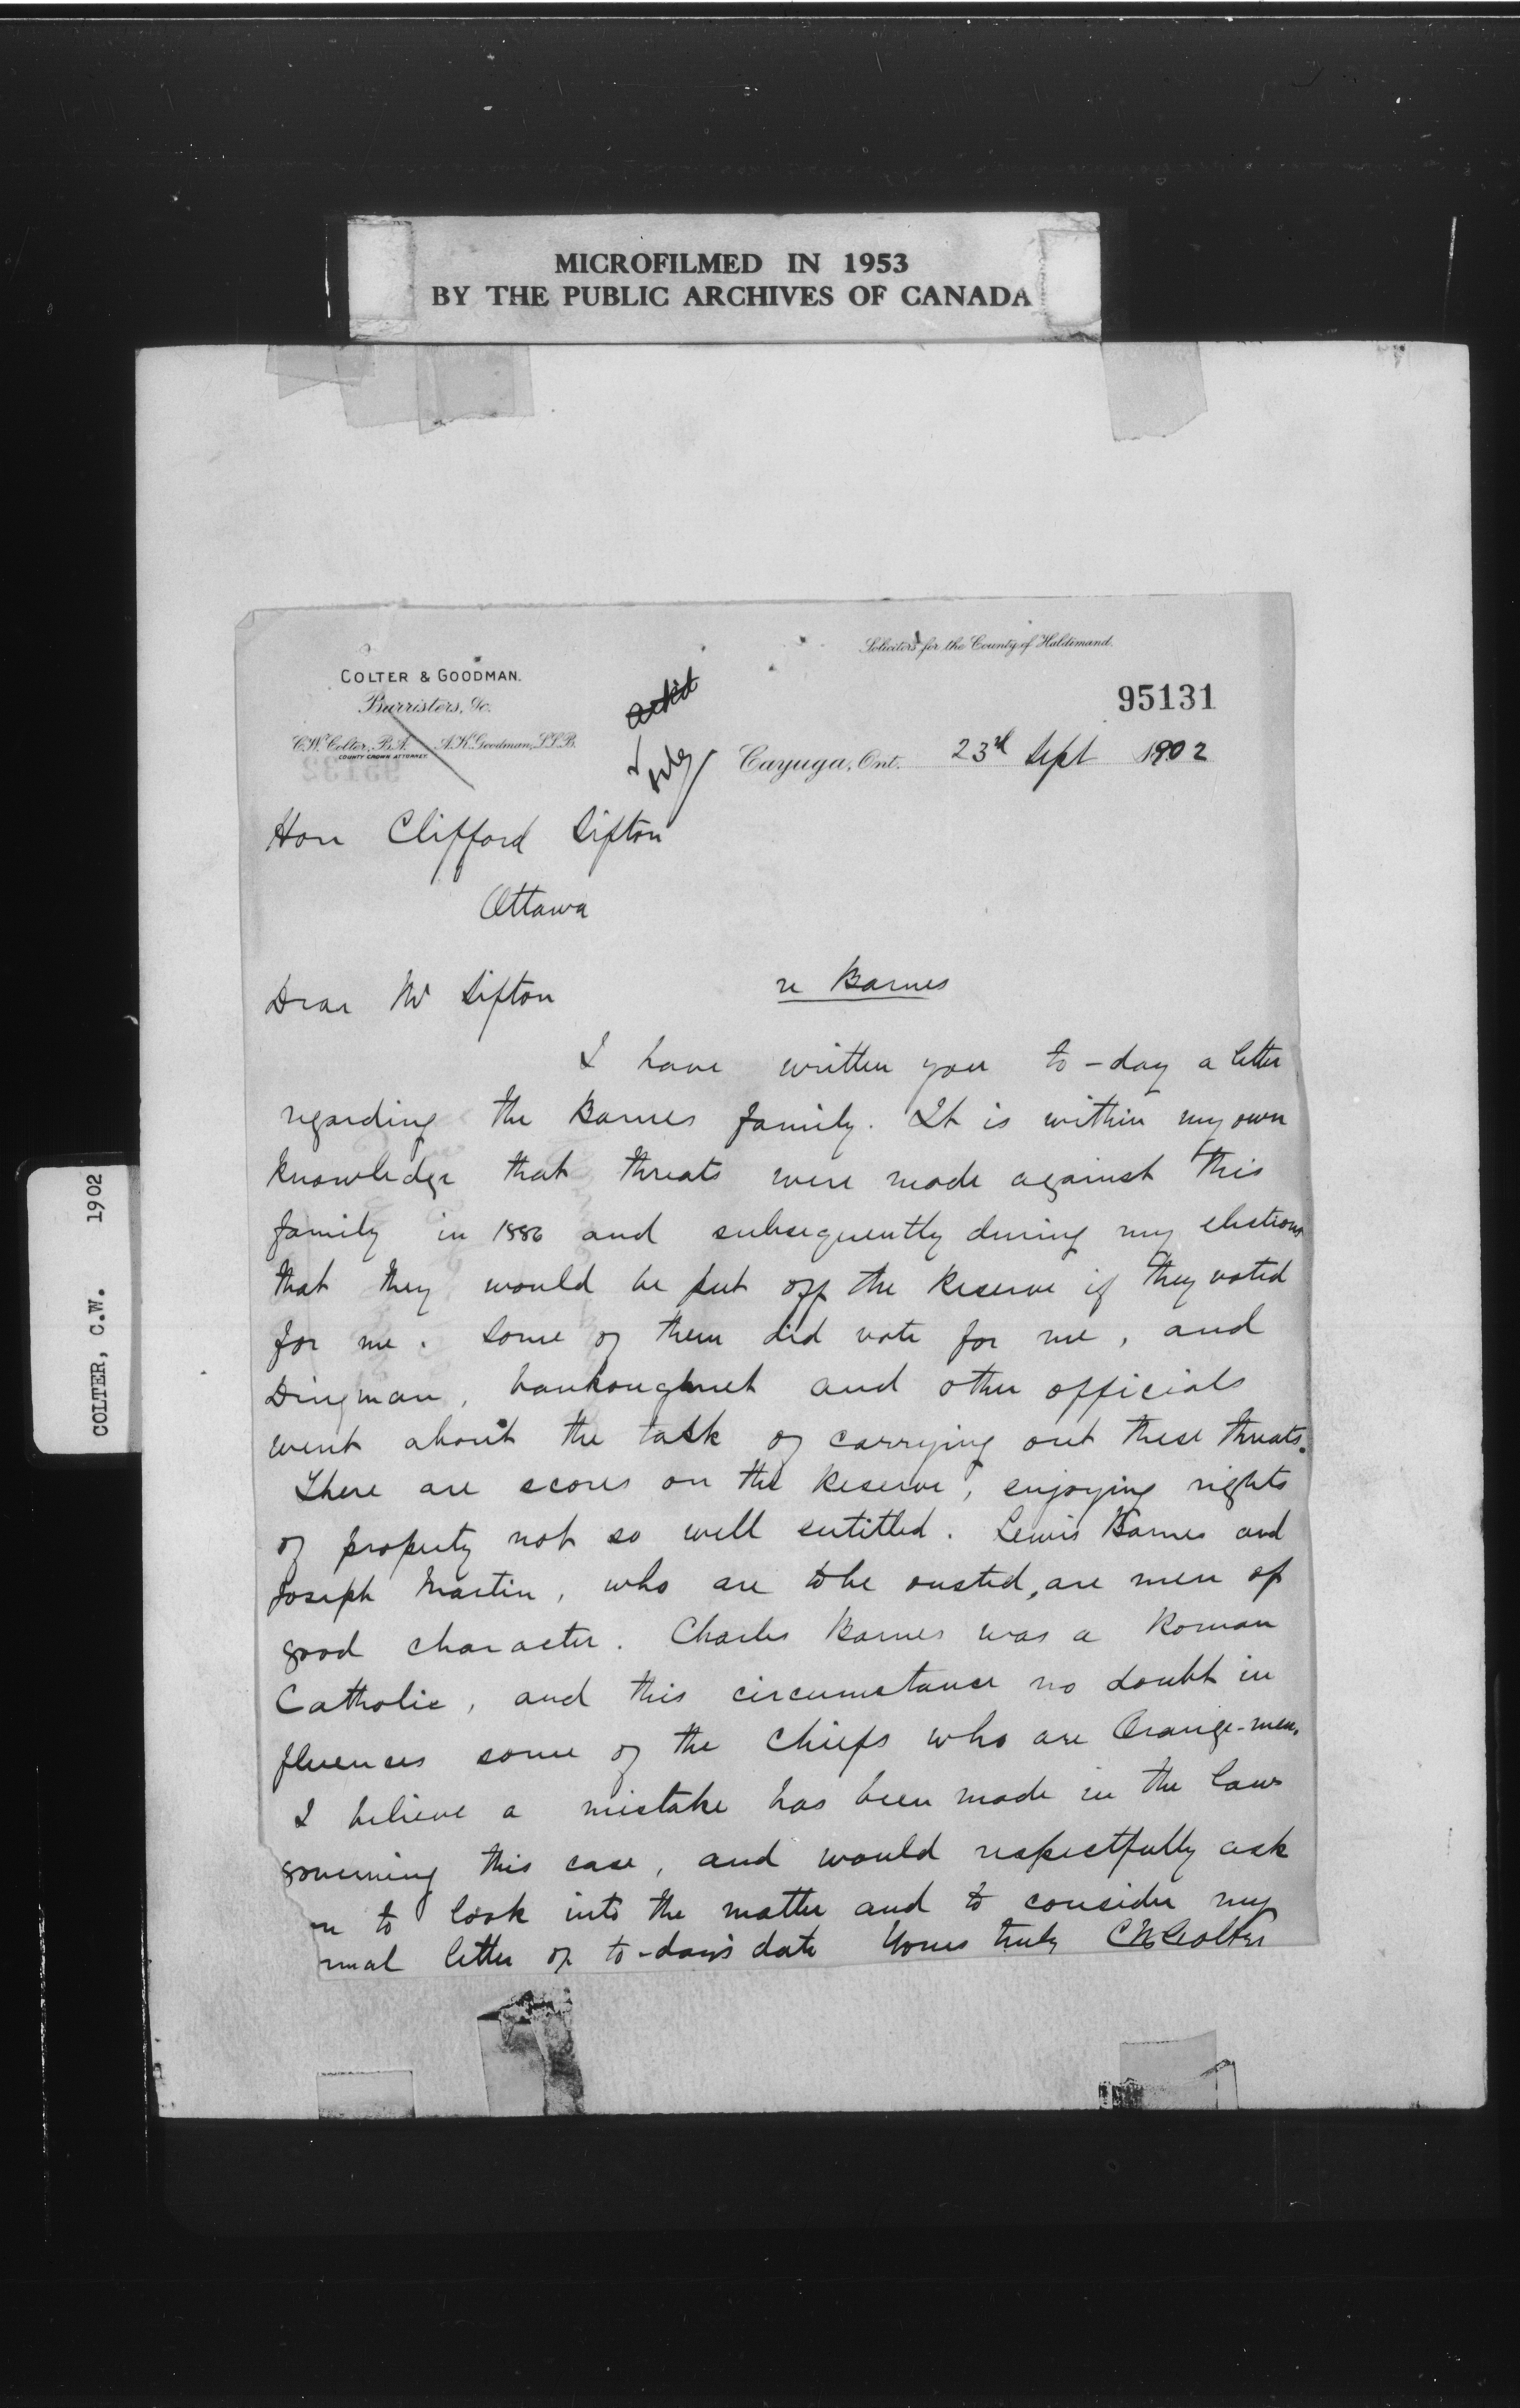 MICROFILMED IN 1953
BY THE PUBLIC ARCHIVES OF CANADA
COLTER, C.W. 1902
Solicitors for the County of Haldimand.
COLTER & GOODMAN.
Barristers, &c.
C.W. Colter, B.A. A.K. Goodman, LL.B.
COUNTY CROWN ATTORNEY.
95131
ackd
Cayuga, Ont. 23rd Sept 1902
Hon Clifford Sifton
Ottawa
Dear Mr Sifton re Barnes
I have written you to-day a letter
regarding the Barnes family. It is within my own
knowledge that threats were made against this
family in 1886 and subsequently during my elections
that they would be put off the Reserve if they voted
for me. Some of them did vote for me, and
Dingman, Vankoughnet and other officials
went about the task of carrying out these threats.
There are scores on the Reserve, enjoying rights
of property not so well entitled. Lewis Barnes and
Joseph Martin, who are to be ousted, are men of
good character. Charles Barnes was a Roman
Catholic, and this circumstance no doubt in
fluences some of the Chiefs who are Orange-men.
I believe a mistake has been made in the laws
governing this case, and would respectfully ask
u to look into the matter and to consider my
rmal letter of to-day's date Yours truly C W Colter